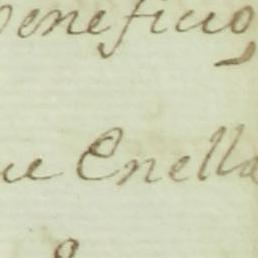 beneficio,
ue Enella